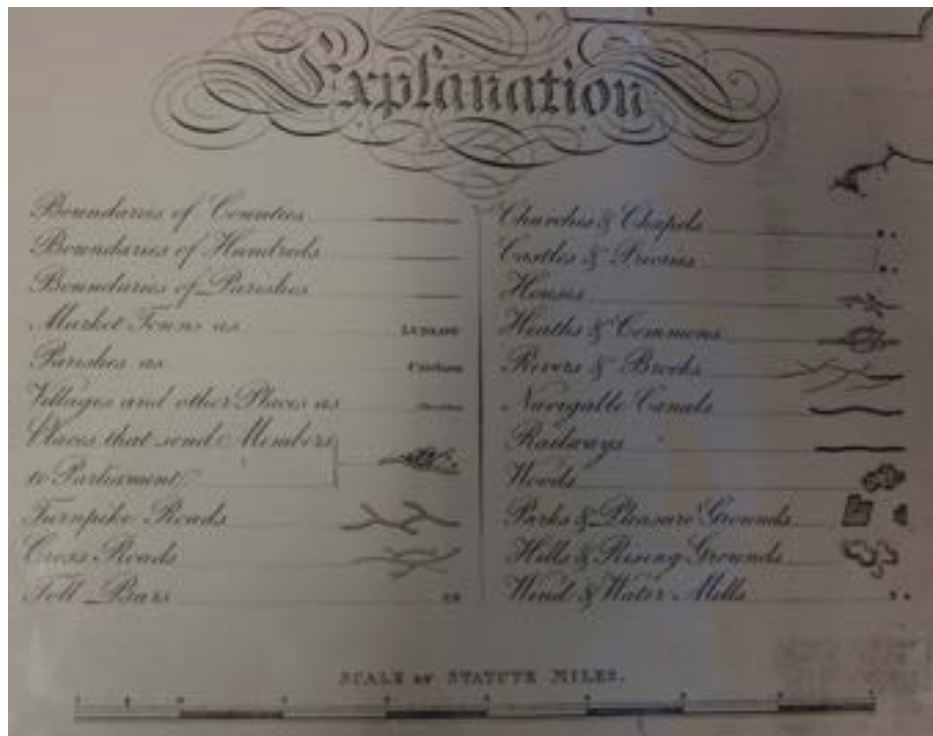 Explanation
Boundaries of Counties
Boundaries of Hundreds
Boundaries of Parishes
Market Towns as LUDLOW
Parishes as
Villages and other Places as
Places that send Members
to Parliament
Turnpike Roads
Cross Roads
Toll Bars T.B
Churches & Chapels
Castles & Priories
Houses
Heaths & Commons
Rivers & Brooks
Navigable Canals
Railways
Woods
Parks & Pleasure Grounds
Hills & Rising Grounds
Wind & Water Mills
SCALE OF STATUTE MILES.